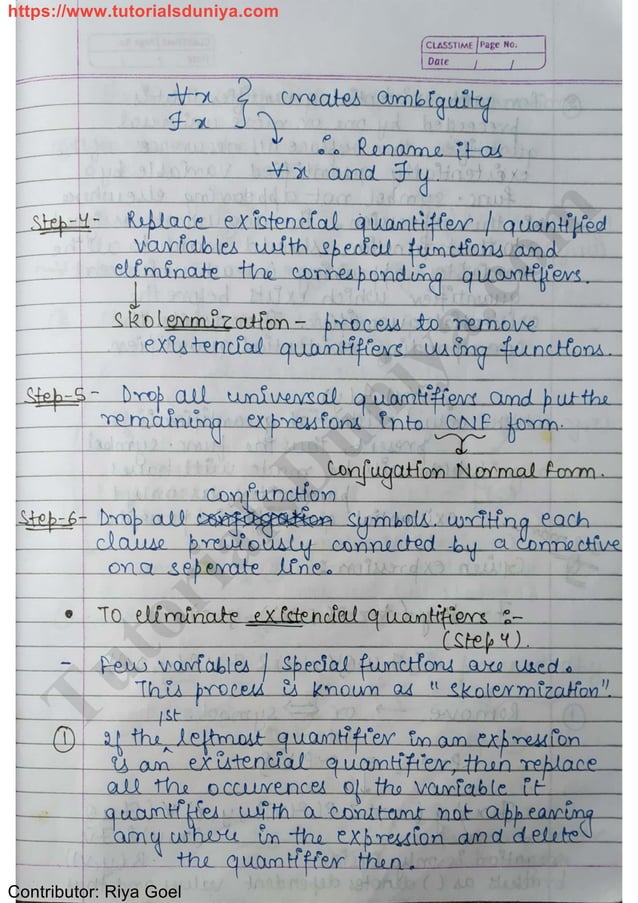 https://www.tutorialsduniya.com
CLASSTIME Page No.
Date / /
∀x } creates ambiguity
∃x
∴ Rename it as
∀x and ∃y
Step-4- Replace existencial quantifier / quantified
variables with special functions and
eliminate the corresponding quantifiers.
Skolermization - process to remove
existencial quantifiers using functions.
Step-5- Drop all universal quantifiers and put the
remaining expressions into CNF form.
Conjugation Normal Form.
conjunction
Step-6- Drop all conjagation symbols writing each
clause previously connected by a connective
on a seperate line.
• To eliminate existencial quantifiers :-
(Step 4).
- Few variables / special functions are used.
This process is known as "skolermization".
1st
① If the ^ leftmost quantifier in an expression
is an existencial quantifier, then replace
all the occurences of the variable it
quantifies with a constant not appearing
any where in the expression and delete
the quantifier then.
TutorialsDuniya.com
Contributor: Riya Goel